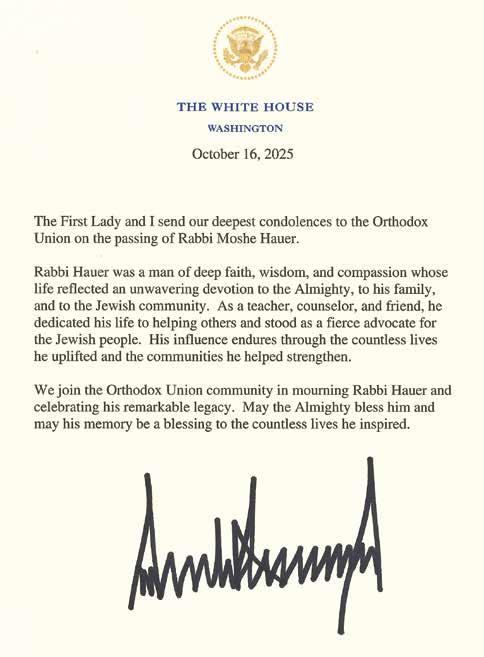 THE WHITE HOUSE
WASHINGTON
October 16, 2025
The First Lady and I send our deepest condolences to the Orthodox
Union on the passing of Rabbi Moshe Hauer.
Rabbi Hauer was a man of deep faith, wisdom, and compassion whose
life reflected an unwavering devotion to the Almighty, to his family,
and to the Jewish community. As a teacher, counselor, and friend, he
dedicated his life to helping others and stood as a fierce advocate for
the Jewish people. His influence endures through the countless lives
he uplifted and the communities he helped strengthen.
We join the Orthodox Union community in mourning Rabbi Hauer and
celebrating his remarkable legacy. May the Almighty bless him and
may his memory be a blessing to the countless lives he inspired.